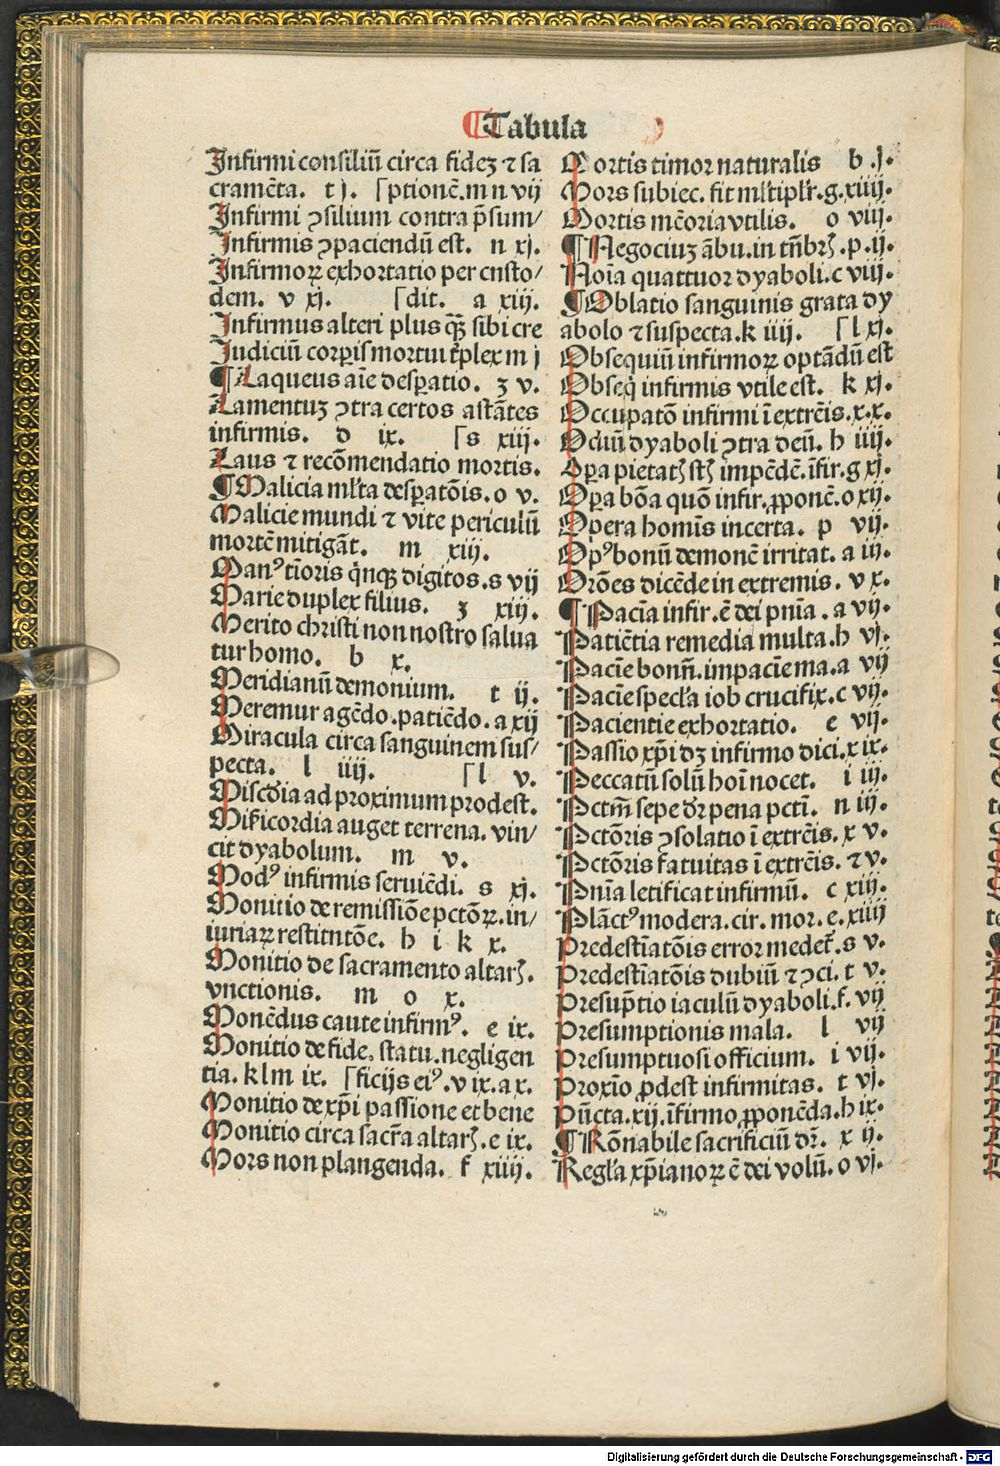 ¶Tabula
Infirmi consiliũ circa fideʒ ⁊ sa
cramẽta. t j. ⌈ptionẽ.m n vij
Infirmi ꝯsilium contra p̃sum/
Infirmis ꝯpaciendũ est. n xj.
Infirmoꝝ exhortatio per cnsto/
dem. v xj. ⌈dit. a xiij.
Infirmus alteri plus qʒ̃ sibi cre
Judiciũ corꝑis mortui t̃plex m j
¶Laqueus aĩe desꝑatio. ʒ v.
Lamentuʒ ꝯtra certos astãtes
infirmis. d ix. ⌈s xiij.
Laus ⁊ recõmendatio mortis.
¶Malicia ml̃ta desꝑatõis. o v.
Malicie mundi ⁊ vite periculũ
mortẽ mitigãt. m xiij.
Manꝰ tĩoris q̃nqʒ digitos. s vij
Marie duplex filius. ʒ xiij.
Merito christi non nostro salua
tur homo. b x.
Meridianũ demonium. t ij.
Meremur agẽdo .patiẽdo. a xij
Miracula circa sanguinem sus/
pecta. l iiij. ⌈l v.
Miscd̃ia ad proximum prodest.
Mik̃icordia auget terrena. vin/
cit dyabolum. m v.
Modꝰ infirmis seruiẽdi. s xj.
Monitio de remissiõe pctõꝝ. in/
iuriaꝝ restitntõe. h i k x.
Monitio de sacramento altarꝭ.
vnctionis. m o x.
Monẽdus caute infirmꝰ. e ix.
Monitio de fide, statu. negligen
tia. k l m ix. ⌈ficijs eiꝰ. v ix. a x.
Monitio de xp̃i passione et bene
Monitio circa sacr̃a altarꝭ. e ix.
Mors non plangenda. f xiiij.
Mortis timor naturalis b .j.
Mors subiec. fit ml̃tipl̃r. g. xiiij.
Mortis mẽoria vtilis. o viij.
¶Negociuʒ ãbu. in tñbrꝭ. p .ij.
Noĩa quattuor dyaboli. c viij.
¶Oblatio sanguinis grata dy
abolo ⁊ suspecta. k iiij. ⌈l xj.
Obsequiũ infirmoꝝ optãdũ est
Obseq̃ infirmis vtile est. k xj.
Occupatõ infirmi ĩ extrẽis. x. x.
Odiũ dyaboli ꝯtra deũ. h iiij.
Oꝑa pietatꝭ stꝭ impẽdẽ. ĩfir. g xj.
Oꝑa bõa quõ infir. ꝓponẽ. o xij.
Opera homĩs incerta. p vij.
Opꝰ bonũ demonẽ irritat. a iij.
Orões dicẽde in extremis. v x.
¶Pacĩa infir. ẽ dei pnĩa . a vij.
Patiẽtia remedia multa. h vj.
Paciẽ bonñ. impaciẽ ma. a vij
Paciẽ specl̃a iob crucifix. c vij.
Pacientie exhortatio. e vij.
Passio xp̃i dʒ infirmo dici. x ix.
Peccatũ solũ hoĩ nocet. i iij.
Pctm̃ sepe dr̃ pena pcti. n iij.
Pctõris ꝯsolatio ĩ extrẽis. x v.
Pctõris fatuitas ĩ extrẽis. ⁊ v.
Pnĩa letificat infirmũ. c xiij.
Plãctꝰ modera. cir. mor. e. xiiij
Predestĩatõis error medet̃. s v.
Predestĩatõis dubiũ ⁊ ꝯci. t v.
Presup̃tio iaculũ dyaboli. f. vij
Presumptionis mala. l vij
Presumptuosi officium. i vij.
Proxĩo ꝓdest infirmitas. t vj.
Pũcta. xij. ĩfirmo ꝓponẽda. h ix.
¶Rõnabile sacrificiũ dr̃. x ij.
Regl̃a xp̃ianoꝝ ẽ dei volũ. o vj.
Digitalisierung gefördert durch die Deutsche Forschungsgemeinschaft - DFG